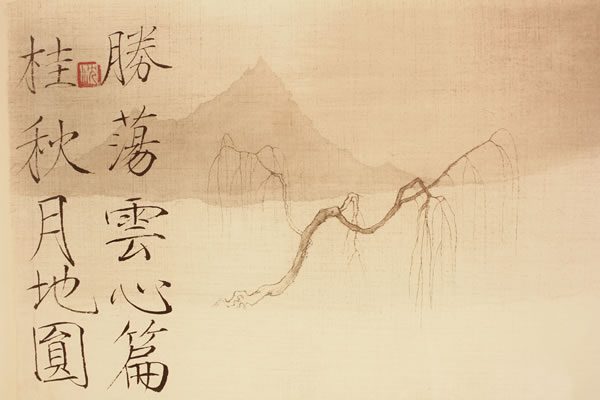 勝蕩雲心篇
桂秋月地圓